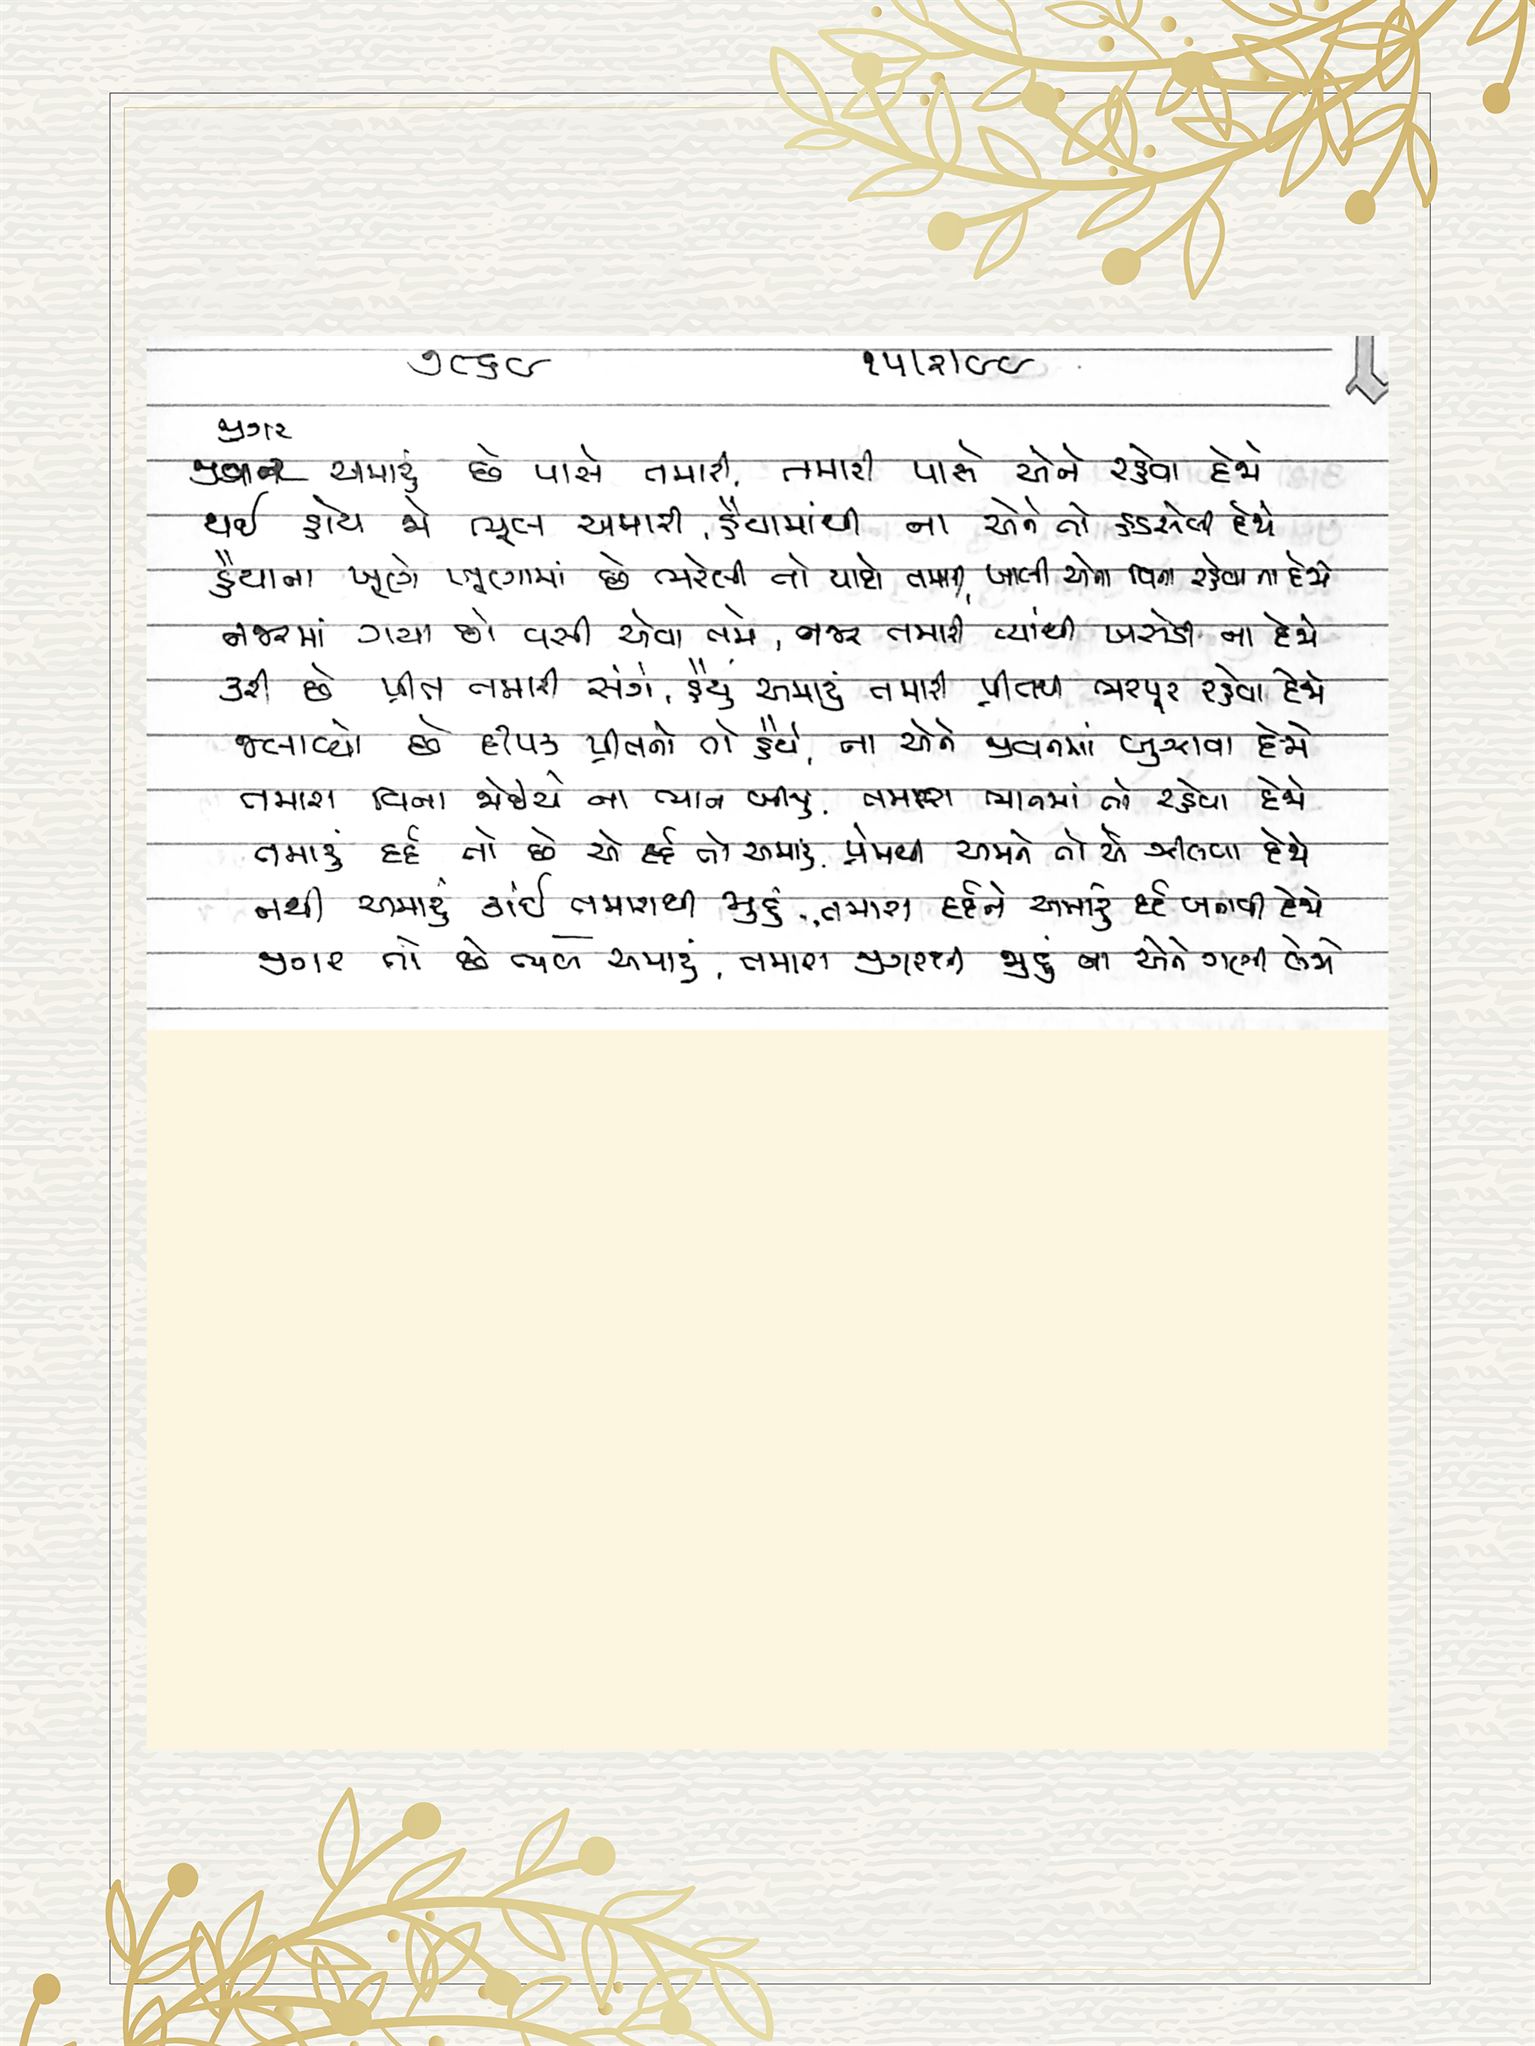 ૭૮૬૯ ૧૫/૨/૯૯
જીગર
અમારું છે પાસે તમારી, તમારી પાસે એને રહેવા દેજો
થઈ હોય જો ભૂલ અમારી, હૈયામાંથી ના એને તો હડસેલી દેજો
હૈયાના ખૂણે ખૂણામાં છે ભરેલી તો યાદો તમારી, ખાલી એના વિના રહેવા ના દેજો
નજરમાં ગયા છો વસી એવા તમે, નજર તમારી ત્યાંથી ખસેડી ના દેજો
કરી છે પ્રીત તમારી સંગે, હૈયું અમારું તમારી પ્રીતથી ભરપૂર રહેવા દેજો
જલાવ્યો છે દીપક પ્રીતનો તો હૈયે, ના એને જીવનમાં બુઝાવા દેજો
તમારા વિના જોઈએ ના ભાન બીજું, તમારા ભાનમાં તો રહેવા દેજો
તમારું દર્દ તો છે એ દર્દ તો અમારું, પ્રેમથી અમને તો એ ઝીલવા દેજો
નથી અમારું કાંઈ તમારાથી જુદું, તમારા દર્દને અમારું દર્દ બનાવી દેજો
જીગર તો છે ભલે અમારું, તમારા જીગરથી જુદું ના એને ગણી લેજો